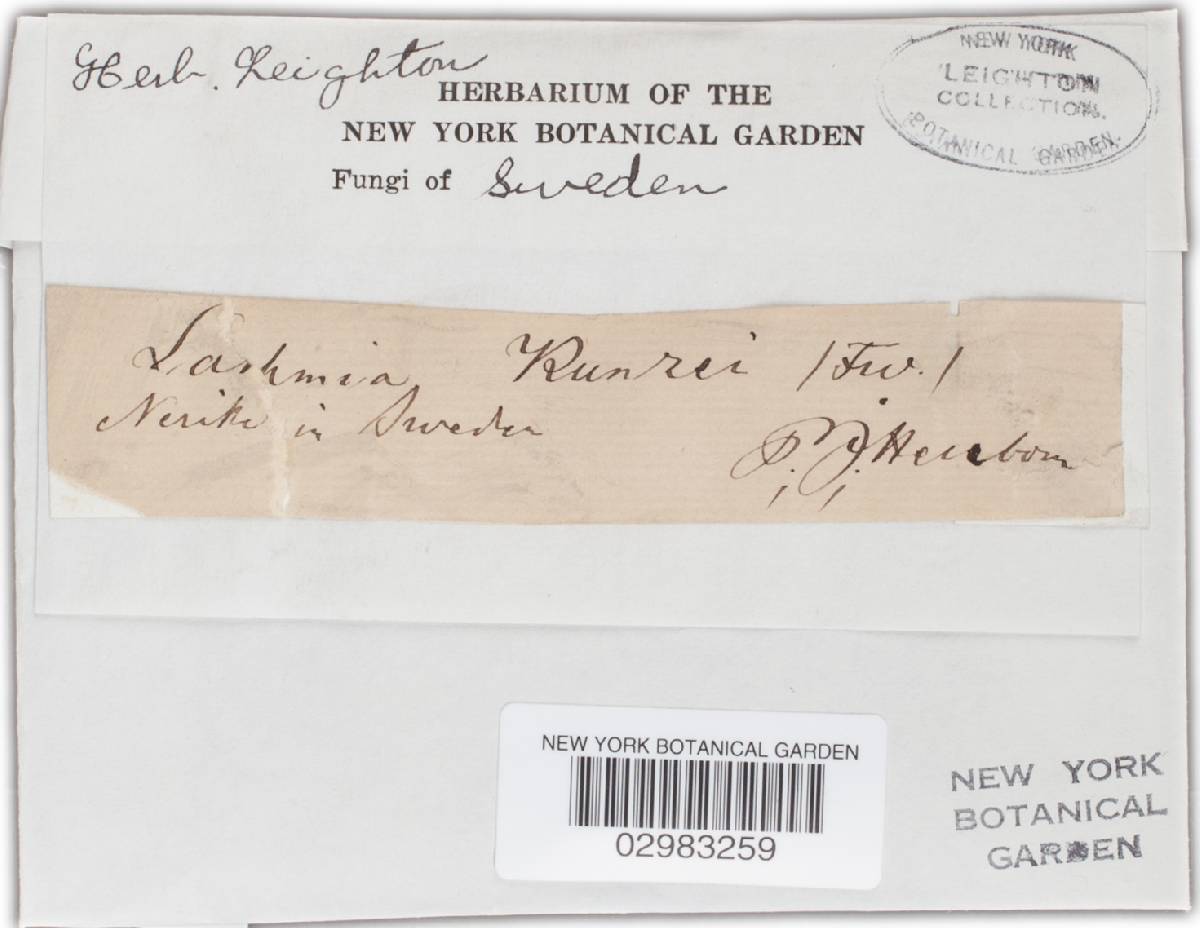 Herb. Leighton
HERBARIUM OF THE
NEW YORK BOTANICAL GARDEN
Fungi of Sweden
NEW YORK
LEIGHTON
COLLECTION.
BOTANICAL GARDEN.
Lahmia Kunzei /Fw./
Nerike in Sweden
P. J. Hellbom
NEW YORK BOTANICAL GARDEN
02983259
NEW YORK
BOTANICAL
GARDEN